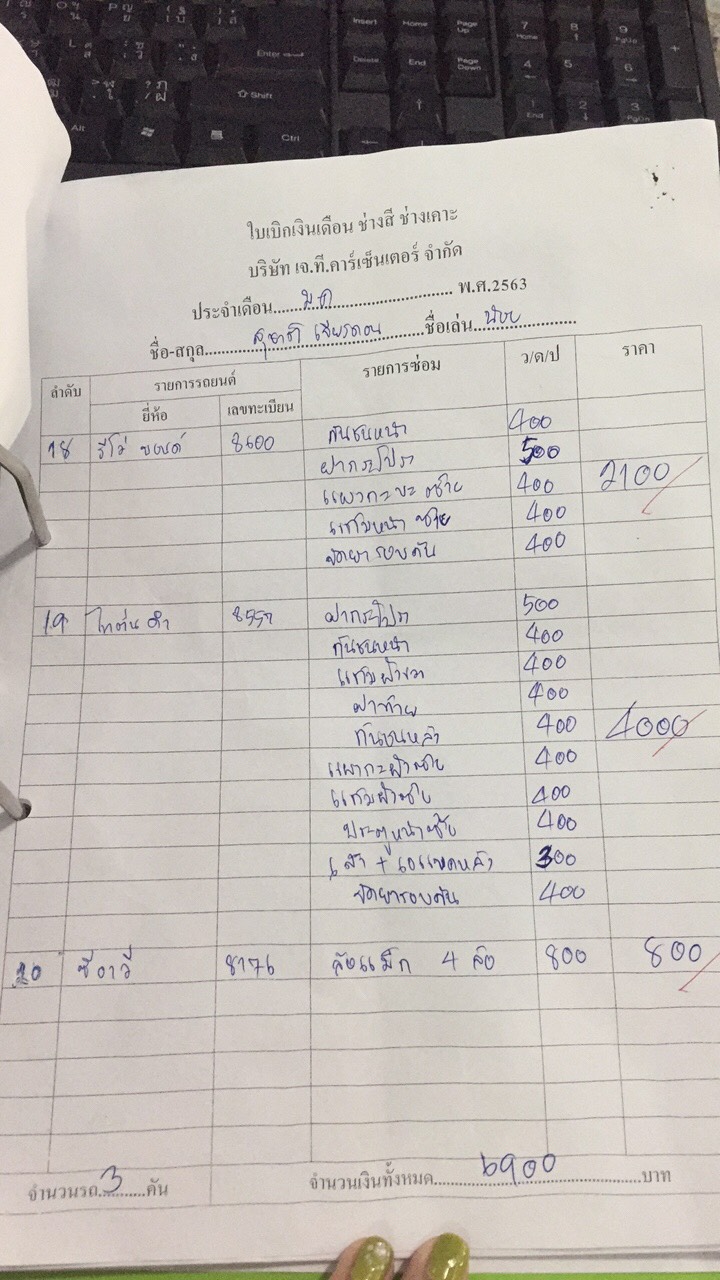 ใบเบิกเงินเดือน ช่างสี ช่างเคาะ
บริษัท เจ.ที.คาร์เซ็นเตอร์ จำกัด
ประจำเดือน.....ม.ค..... พ.ศ.2563
ชื่อ-สกุล..........ชื่อเล่น.....น้อย.....
ลำดับ รายการรถยนต์ รายการซ่อม ว/ด/ป ราคา
ยี่ห้อ เลขทะเบียน
18 รีโว่ 8600 กันชนหน้า 400
ฝากระโปรง 500
แผงกะบะซ้าย 400 2100
แก้มหน้าซ้าย 400
ขัดยารอบคัน 400
19 ไทตั่น ดำ ฝากระโปรง 500
กันชนหน้า 400
แก้มข้างขวา 400
ฝาท้าย 400
กันชนหลัง 400 4000
400
แก้มข้างซ้าย 400
ประตูหน้าซ้าย 400
300
ขัดยารอบคัน 400
20 ซีอาวี 8176 ล้อแม็ก 4 ล้อ 800 800
จำนวนรถ..3..คัน จำนวนเงินทั้งหมด.....6900.....บาท
Insert Home Page Up
Delete End Page Down
Enter
Shift
Alt Ctrl